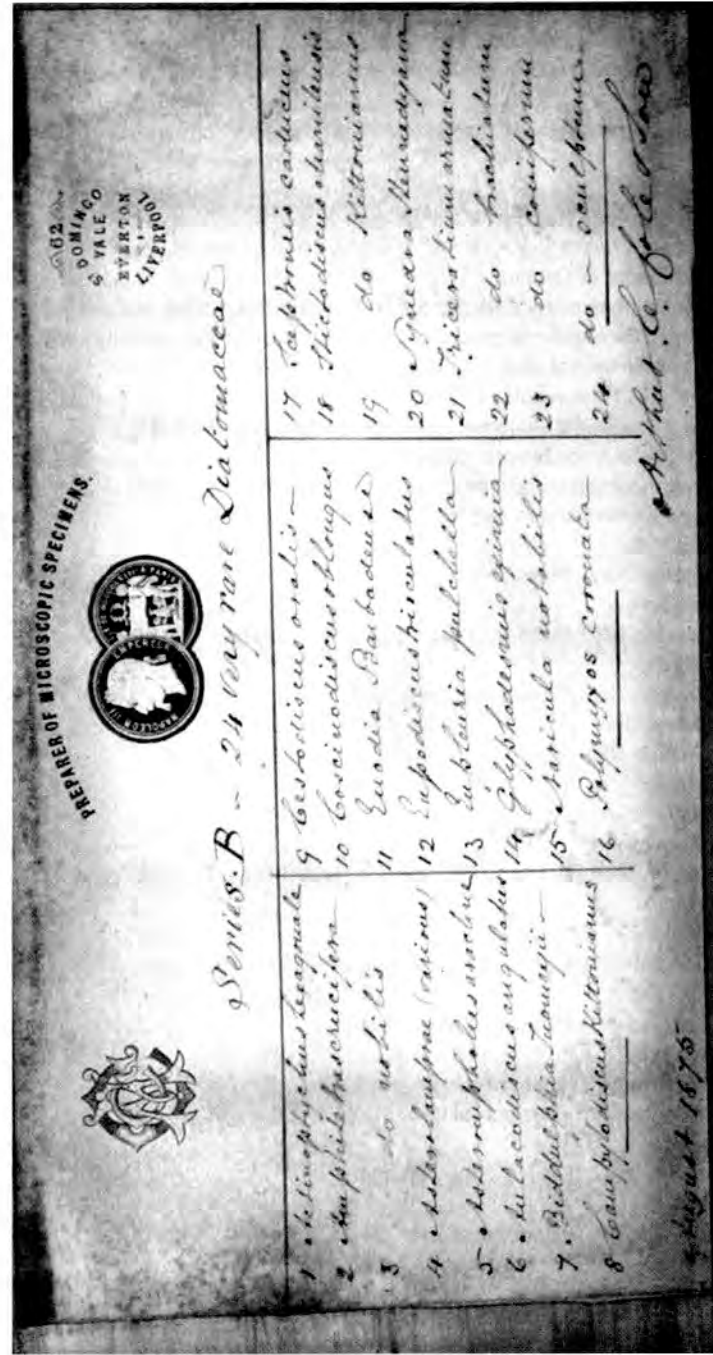 PREPARER OF MICROSCOPIC SPECIMENS.
62
DOMINGO
VALE
EVERTON
LIVERPOOL
NAPOLEON III EMPEREUR
Series. B - 24 very rare Diatomaceae
1 Actinoptychus hexagonale
2 Amphitetras crucifera
3 do nobilis
4 Asterolamprae (various)
5 Asteromphalus arachne
6 Aulacodiscus angulatus
7 Biddulphia Tuomeyii
8 Campylodiscus Kittonianus
9 Cestodiscus ovalis
10 Coscinodiscus oblongus
11 Euodia Barbadense
12 Eupodiscus trioculatus
13 Eupleuria pulchella
14 Glyphodesmis eximia
15 Navicula notabilis
16 Polymyxos coronata
17 Sceptroneis caduceus
18 Stictodiscus
19 do Kittonianus
20 Synedra
21 Triceratium armatum
22 do brachiatum
23 do coniferum
24 do sculptum
Arthur C. Cole & Son
August 1875